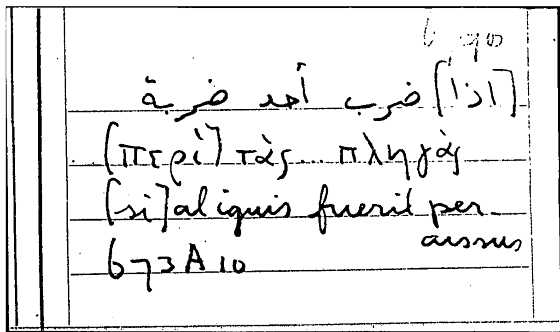 [اذا] ضرب أحد ضربة
[περὶ] τὰς... πληγὰς
[si] aliquis fuerit per-
cussus
673A10